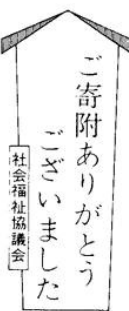 ご寄附ありがとう
ございました
社会福祉協議会